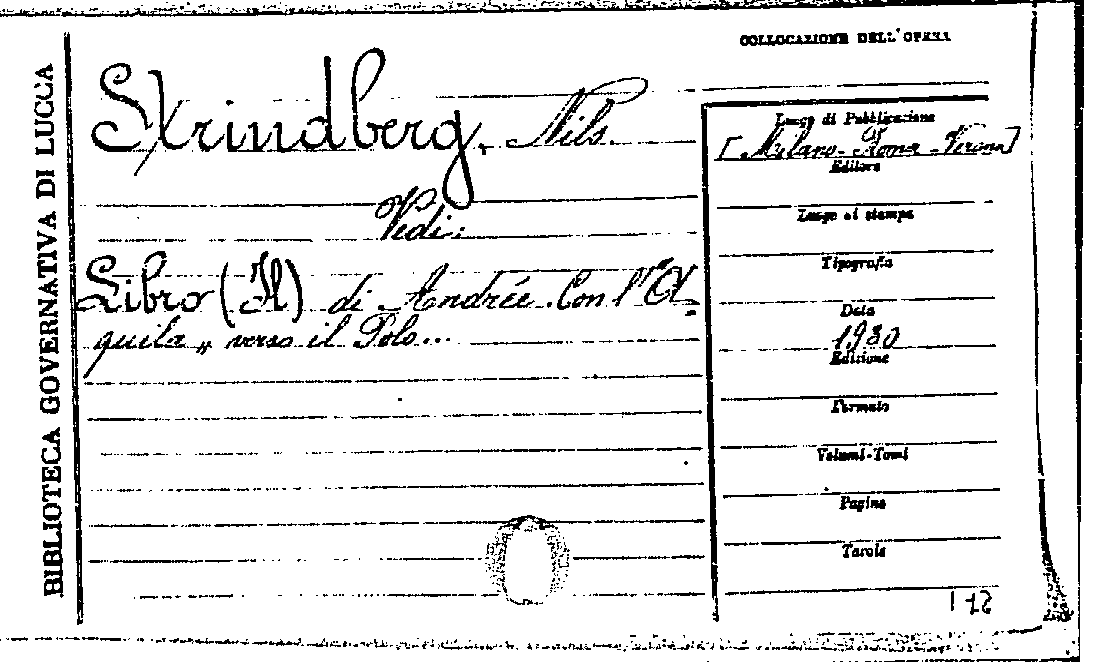 BIBLIOTECA GOVERNATIVA DI LUCCA
COLLOCAZIONE DELL'OPERA
Strindberg, Nils.
Vedi:
Libro (Il) di Andrée. Con l'"A-
quila„ verso il Polo...
Luogo di Pubblicazione
[Milano-Roma-Verona]
Editore
Luogo di stampa
Tipografia
Data
1930
Edizione
Formato
Volumi-Tomi
Pagine
Tavole